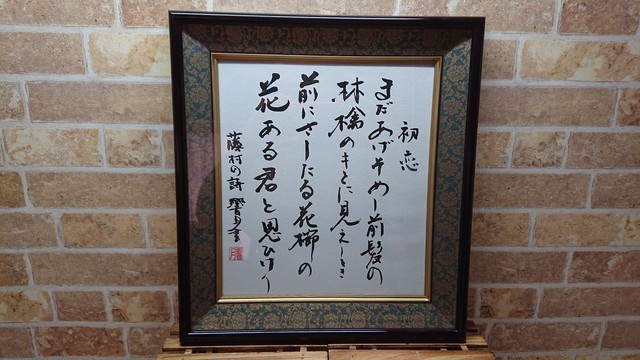 初恋
まだあげそめし前髪の
林檎のもとに見えしとき
前にさしたる花櫛の
花ある君と思ひけり
藤村の詩